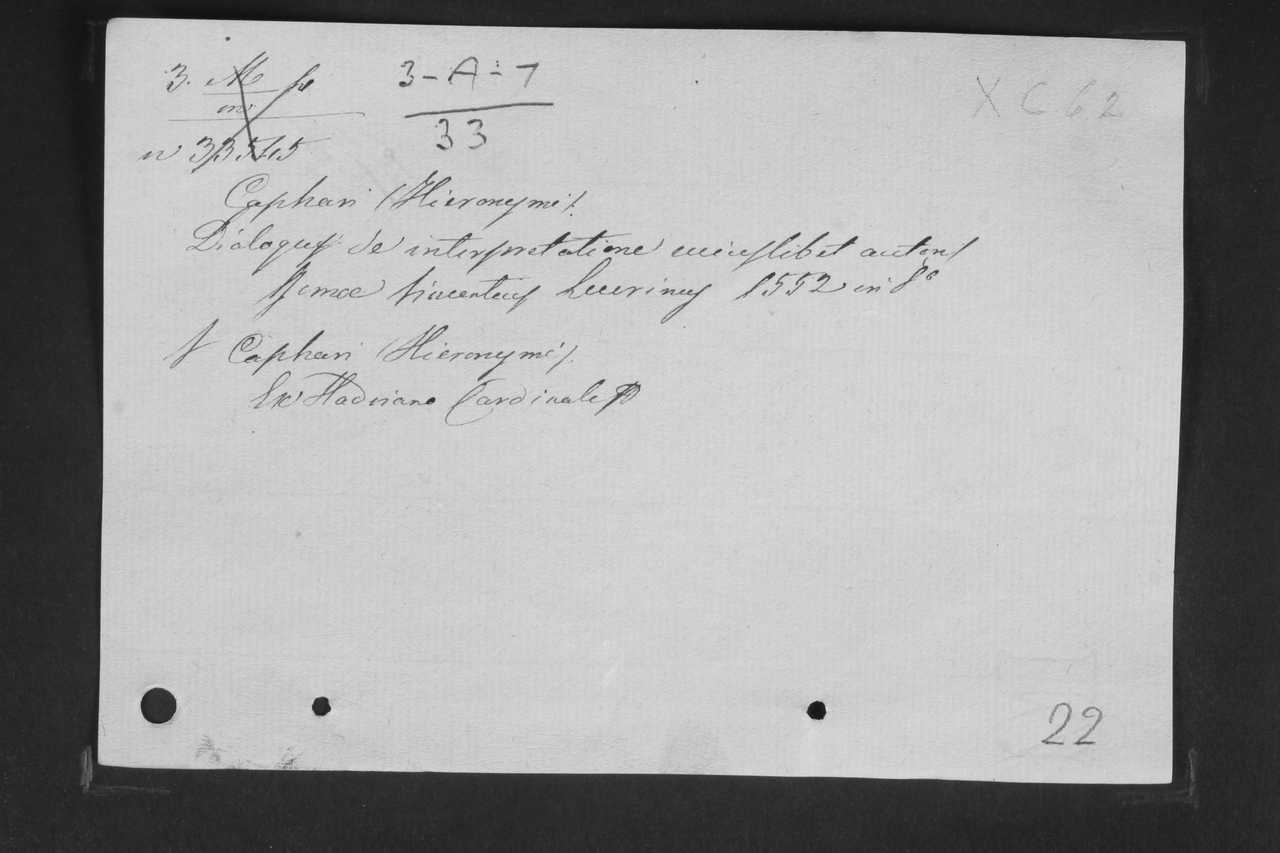 3. M
m
3-A-7
33
X C 62
Caphari (Hieronymi).
Dialogus de interpretatione cuiuslibet autoris
Romae Vincentius Lucrinus 1552 in 8°
Caphari (Hieronymi).
Ex Hadriano Cardinale
22